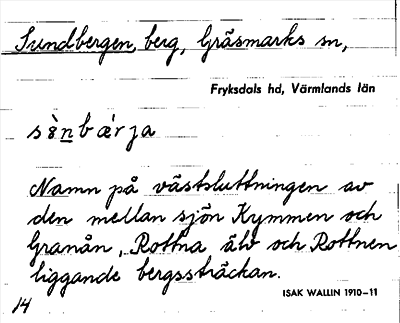 Sundbergen, berg, Gräsmarks sn,
Fryksdals hd, Värmlands län
sə̀n bǽrja
Namn på västsluttningen av
den mellan sjön Kymmen och
Granån, Rottna älv och Rottnen
liggande bergssträckan.
ISAK WALLIN 1910–11
14